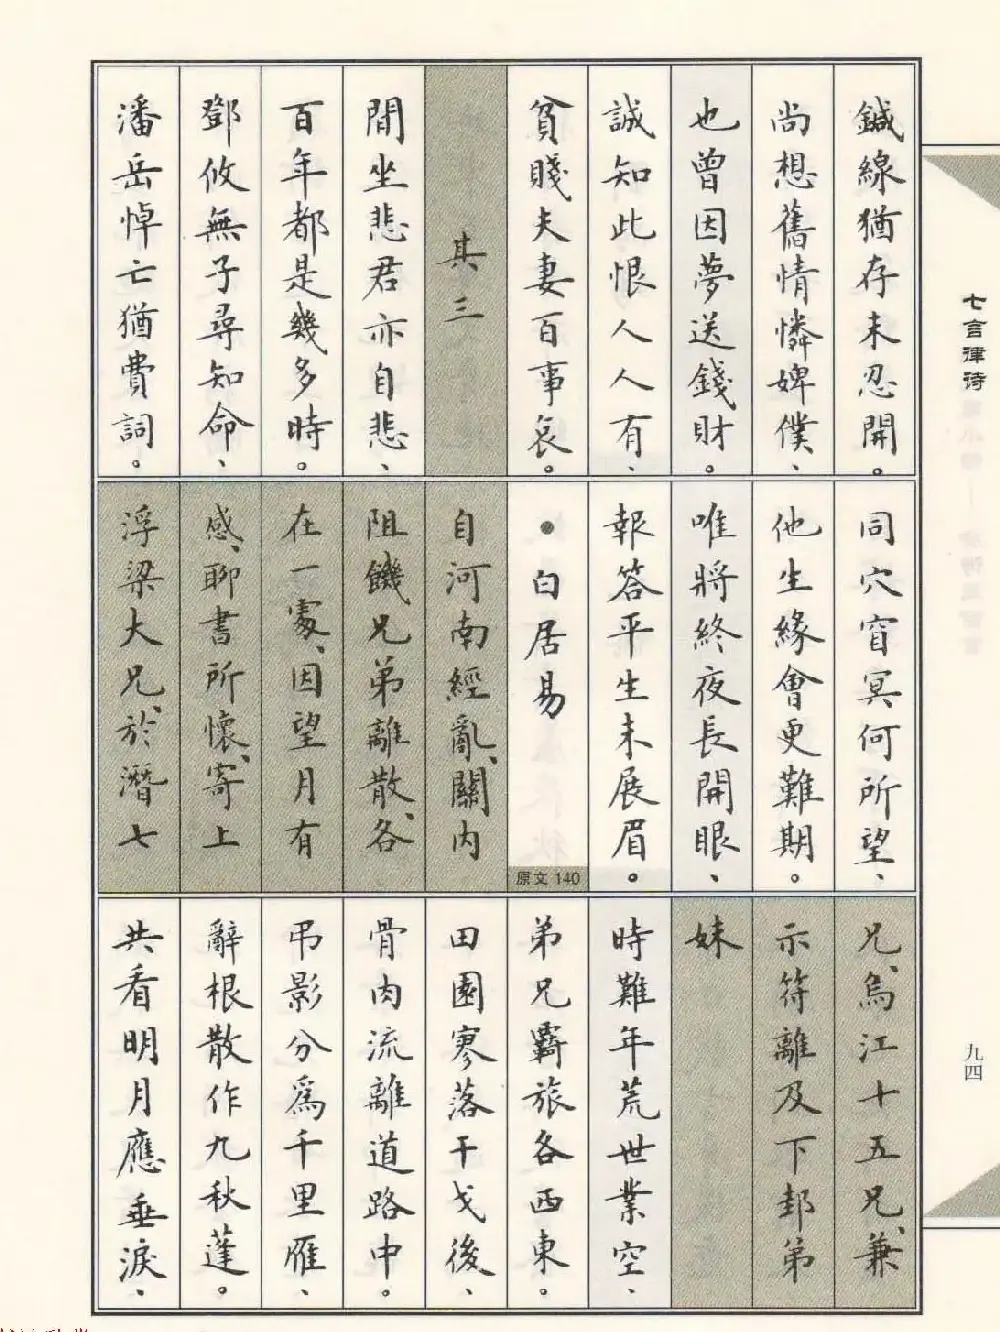 鍼線猶存未忍開。
尚想舊情憐婢僕、
也曾因夢送錢財。
誠知此恨人人有、
貧賤夫妻百事哀。
其三
閒坐悲君亦自悲、
百年都是幾多時。
鄧攸無子尋知命、
潘岳悼亡猶費詞。
同穴窅冥何所望、
他生緣會更難期。
唯將終夜長開眼、
報答平生未展眉。
•白居易
原文 140
自河南經亂、關内
阻饑兄弟離散、各
在一處、因望月有
感、聊書所懷、寄上
浮梁大兄、於潛七
兄、烏江十五兄、兼
示符離及下邽弟
妹
時難年荒世業空、
弟兄羇旅各西東。
田園寥落干戈後、
骨肉流離道路中。
弔影分爲千里雁、
辭根散作九秋蓬。
共看明月應垂淚、
七言律詩
九四